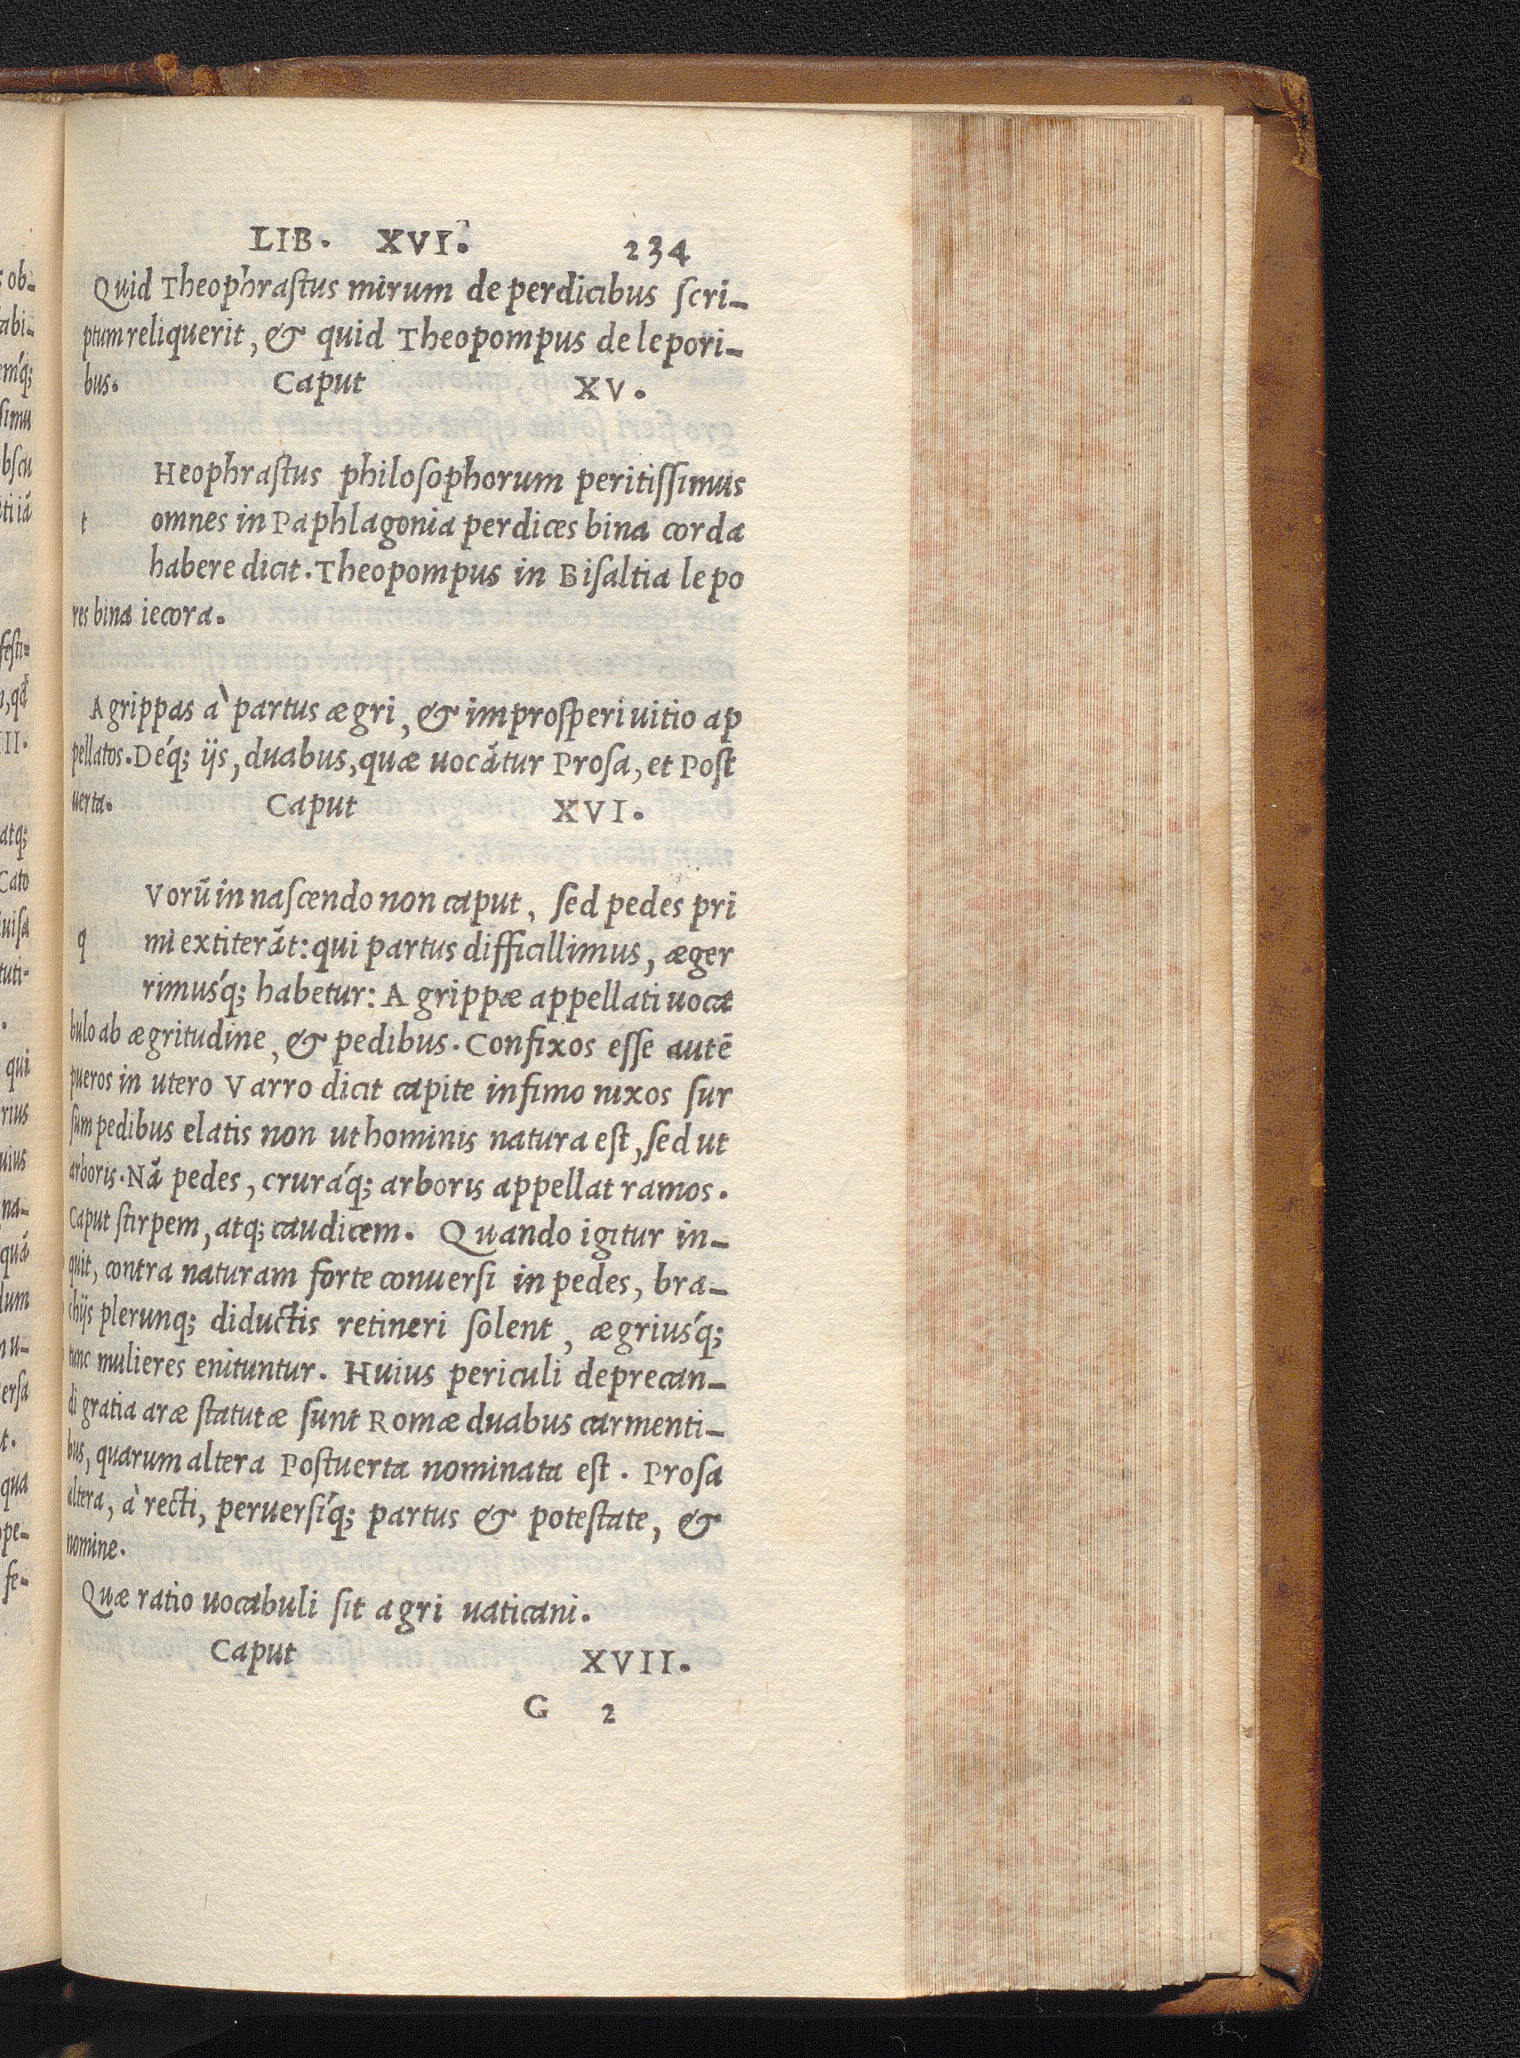 LIB. XVI. 234
Quid Theophrastus mirum de perdicibus scri-
ptum reliquerit, & quid Theopompus de lepori-
bus. Caput XV.
Heophrastus philosophorum peritissimus
t omnes in Paphlagonia perdices bina corda
habere dicit. Theopompus in Bisaltia lepo
res bina iecora.
Agrippas à partus ægri, & improsperi uitio ap
pellatos. Deq́; ijs, duabus, quæ uocãtur Prosa, et Post
uerta. Caput XVI.
Vorũ in nascendo non caput, sed pedes pri
q mi extiterãt: qui partus difficillimus, æger
rimusq́; habetur: Agrippæ appellati uoca
bulo ab ægritudine, & pedibus. Confixos esse autẽ
pueros in utero Varro dicit capite infimo nixos sur
sum pedibus elatis non ut hominis natura est, sed ut
arboris. Nã pedes, cruraq́; arboris appellat ramos.
Caput stirpem, atq; caudicem. Quando igitur in-
quit, contra naturam forte conuersi in pedes, bra-
chijs plerunq; diductis retineri solent, ægriusq́;
tunc mulieres enituntur. Huius periculi deprecan-
di gratia aræ statutæ sunt Romæ duabus carmenti-
bus, quarum altera Postuerta nominata est. Prosa
altera, à recti, peruersiq́; partus & potestate, &
nomine.
Quæ ratio uocabuli sit agri uaticani.
Caput XVII.
G 2